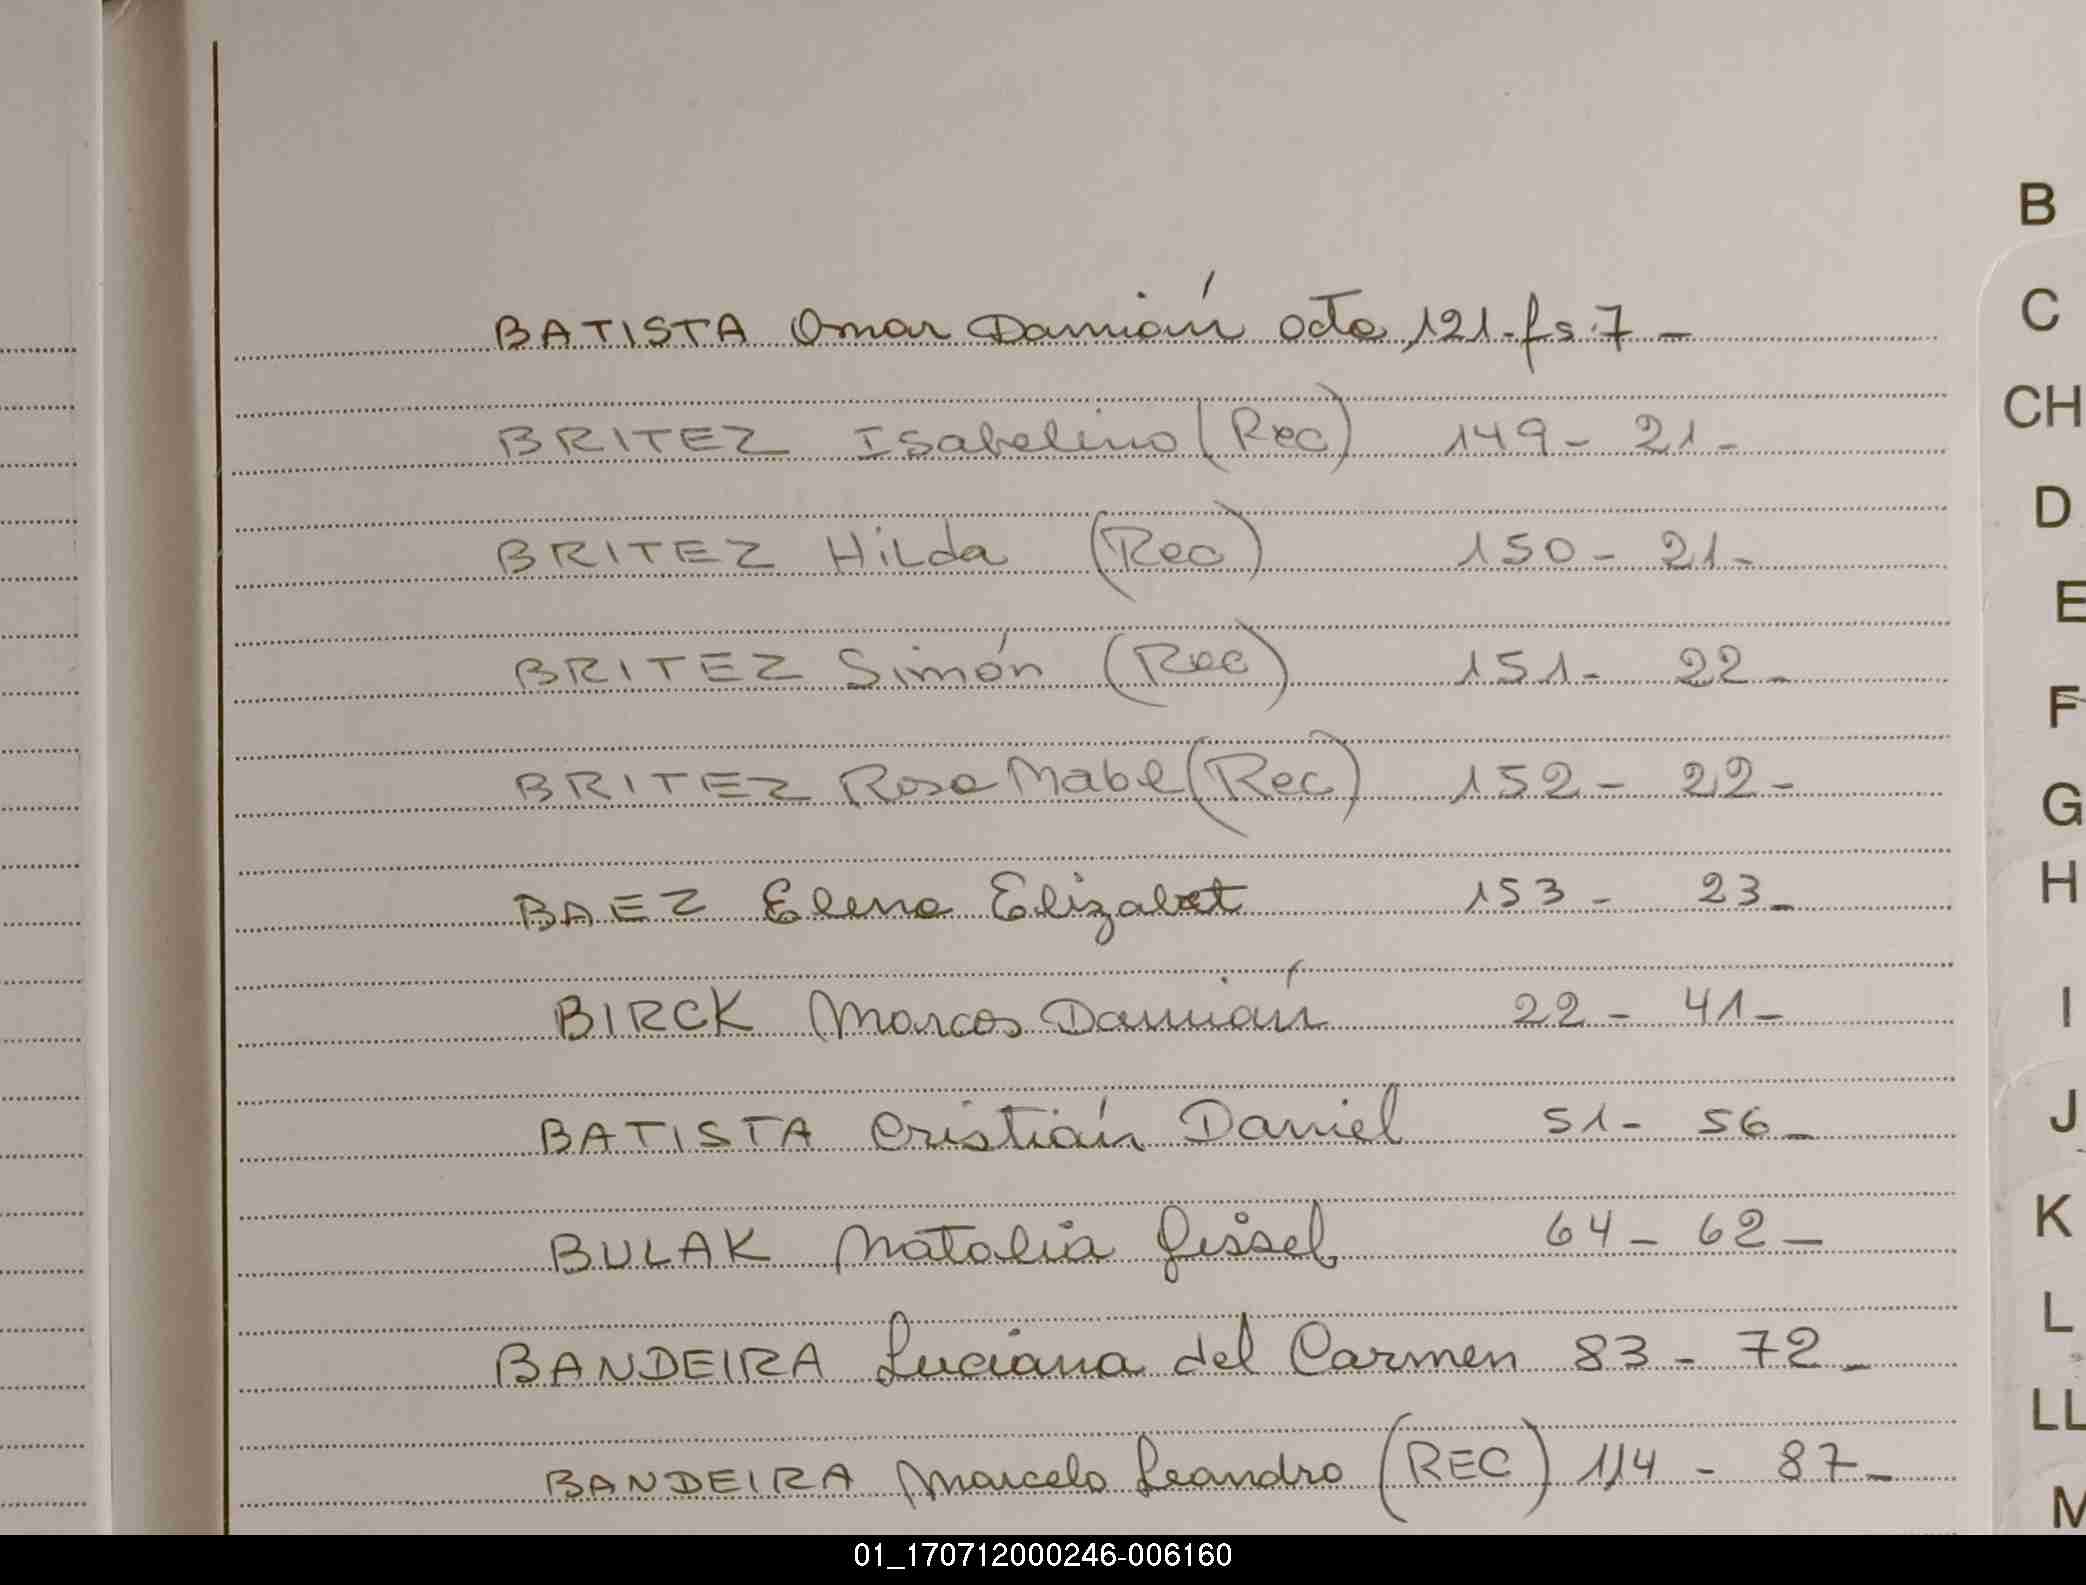 BATISTA Omar Damián acta 121-fs.7-
BRITEZ Isabelino (Rec) 149- 21-
BRITEZ Hilda (Rec) 150- 21-
BRITEZ Simón (Rec) 151- 22-
BRITEZ Rosa Mabel (Rec) 152- 22-
BAEZ Elena Elizabet 153- 23-
BIRCK Marcos Damián 22- 41-
BATISTA Cristián Daniel 51- 56-
BULAK Natalia Gissel 64- 62-
BANDEIRA Luciana del Carmen 83- 72-
BANDEIRA Marcelo Leandro (REC) 114- 87-
B
C
CH
D
E
F
G
H
I
J
K
L
LL
M
01_170712000246-006160